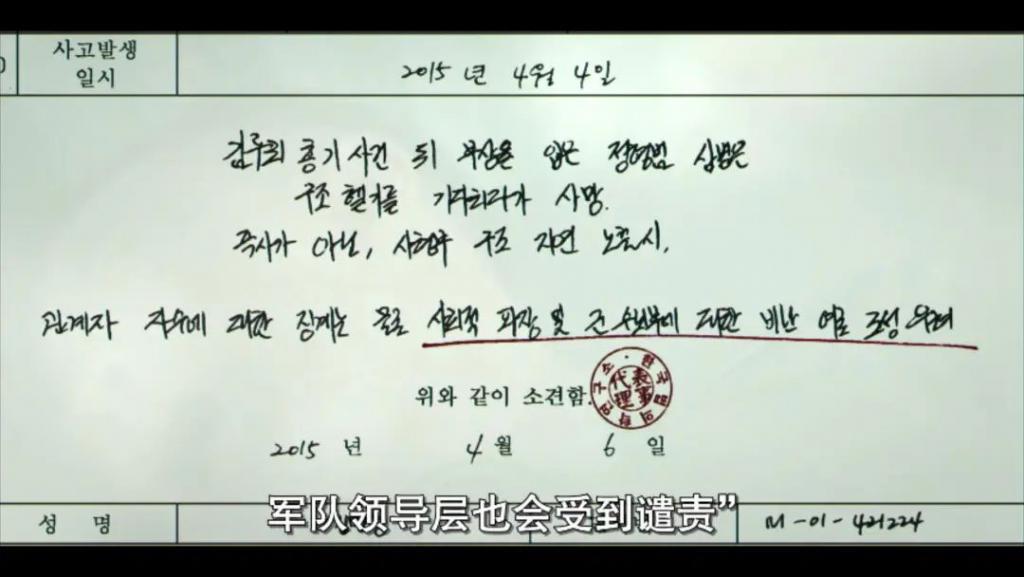 사고발생
일시
2015 년 4월 4일
김루희 총기 사건 뒤 부상을 입은 정형범 상병은
구조 헬기를 기다리다가 사망.
즉사가 아닌, 사형수 구조 지연 노출시,
관계자 다수에 대한 징계는 물론 사회적 파장 및 군 수뇌부에 대한 비난 여론 조성 우려
위와 같이 소견함.
代表
理事
2015 년 4 월 6 일
军队领导层也会受到谴责”
성 명
M-01-421224